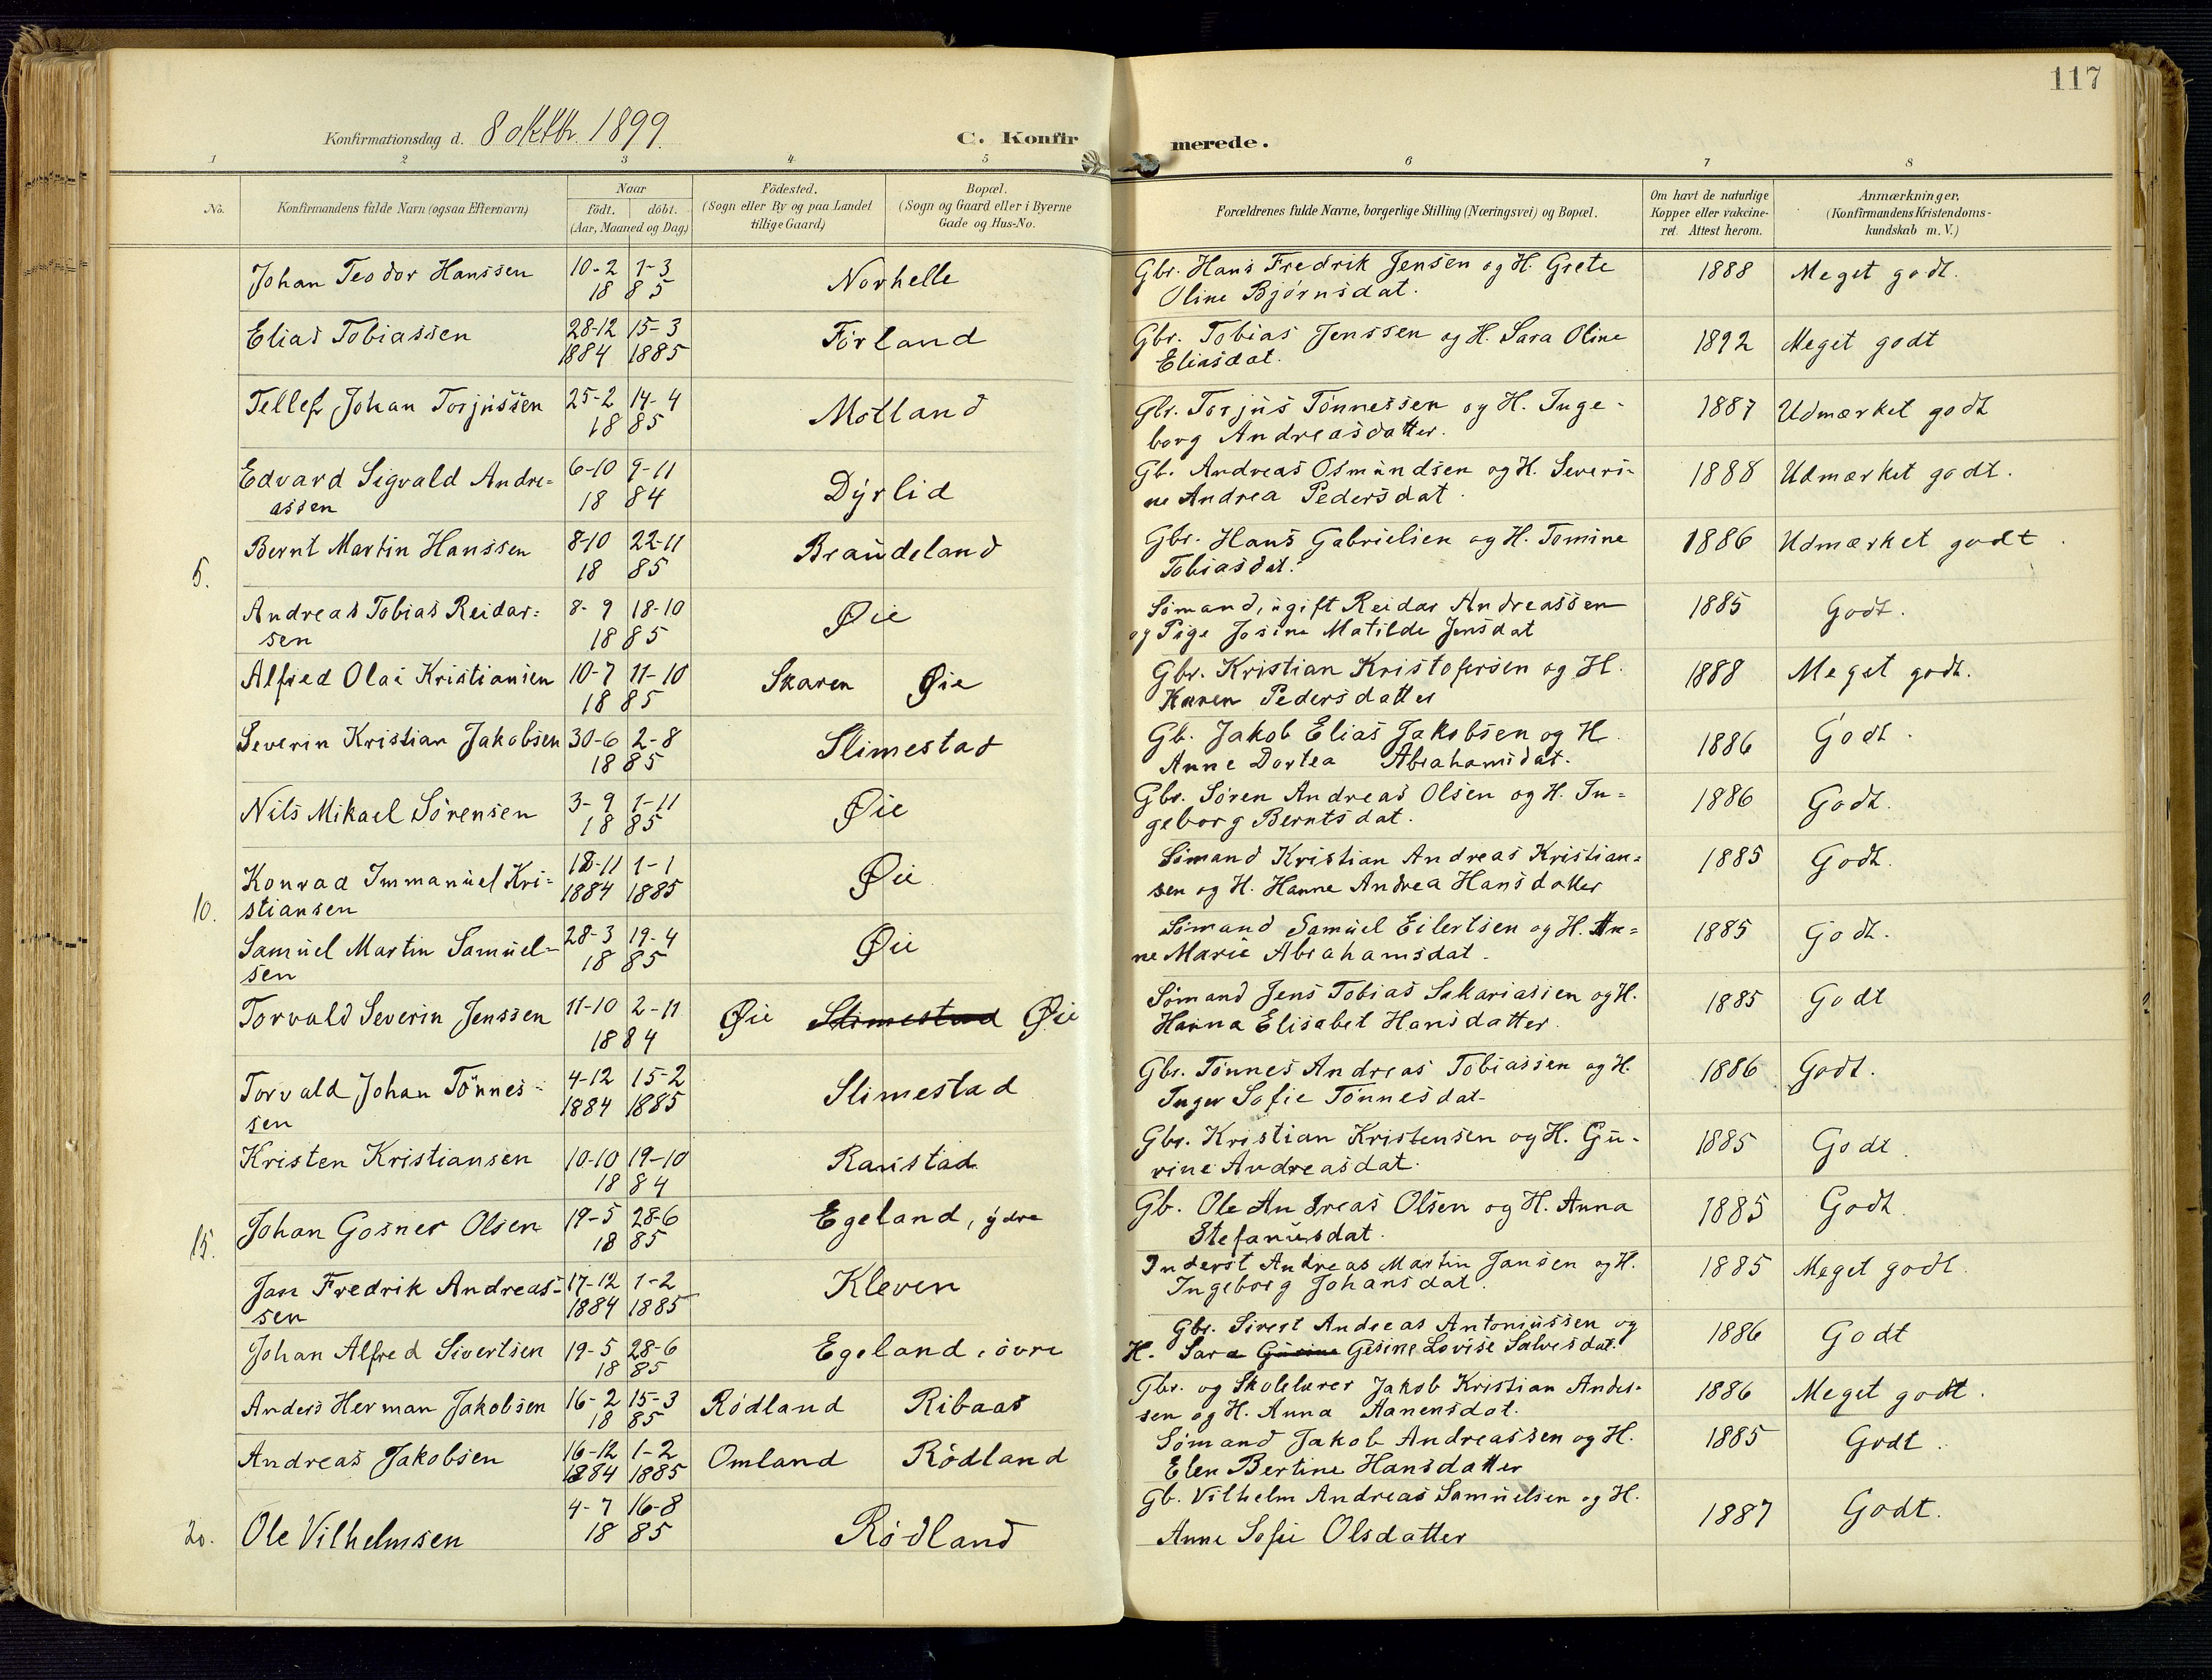 117
Konfirmationsdag d. 8 oktbr. 1899.
C. Konfirmerede.
1 2 3 4 5 6 7 8
No.
Konfirmandens fulde Navn (ogsaa Efternavn)
Naar
födt. döbt.
(Aar, Maaned og Dag)
Födested.
(Sogn eller By og paa Landet
tillige Gaard)
Bopæl.
(Sogn og Gaard eller i Byerne
Gade og Hus-No.
Forældrenes fulde Navne, borgerlige Stilling (Næringsvei) og Bopæl.
Om havt de naturlige
Kopper eller vakcine-
ret. Attest herom.
Anmærkninger,
(Konfirmandens Kristendoms-
kundskab m. V.)
Johan Teodor Hanssen 10-2 1-3 1885 Norhelle Gbr. Hans Fredrik Jensen og H. Grete
Oline Bjørnsdat. 1888 Meget godt.
Elias Tobiassen 28-12 1884 15-3 1885 Førland Gbr. Tobias Jenssen og H. Sara Oline
Eliasdat. 1892 Meget godt
Tellef Johan Torjussen 25-2 14-4 1885 Motland Gbr. Torjus Tønnessen og H. Inge-
borg Andreasdatter. 1887 Udmærket godt
Edvard Sigvald Andre=
assen 6-10 9-11 1884 Dyrlid Gb. Andreas Osmundsen og H. Severi-
ne Andrea Pedersdat. 1888 Udmærket godt.
5. Bernt Martin Hanssen 8-10 22-11 1885 Braudeland Gbr. Hans Gabrielsen og H. Tomine
Tobiasdat. 1886 Udmærket godt.
Andreas Tobias Reidar=
sen 8-9 18-10 1885 Øie Sømand, ugift Reidar Andreassen
og Pige Josine Matilde Jensdat 1885 Godt.
Alfred Olai Kristiansen 10-7 11-10 1885 Skaren Øie Gbr. Kristian Kristofersen og H.
Karen Pedersdatter 1888 Meget godt.
Severin Kristian Jakobsen 30-6 2-8 1885 Slimestad Gb. Jakob Elias Jakobsen og H.
Anne Dortea Abrahamsdat. 1886 Godt.
Nils Mikael Sørensen 3-9 1-11 1885 Øie Gbr. Søren Andreas Olsen og H. In=
geborg Berntsdat. 1886 Godt.
10. Konrad Immanuel Kri=
stiansen 18-11 1884 1-1 1885 Øie Sømand Kristian Andreas Kristian=
sen og H. Hanne Andrea Hansdatter 1885 Godt.
Samuel Martin Samuel=
sen 28-3 19-4 1885 Øie Sømand Samuel Eilertsen og H. An=
ne Marie Abrahamsdat. 1885 Godt.
Torvald Severin Jenssen 11-10 2-11 1884 Øie Slimestad Øie Sømand Jens Tobias Sakariasien og H.
Hanna Elisabet Hansdatter. 1885 Godt
Torvald Johan Tønnes-
sen 4-12 1884 15-2 1885 Slimestad Gbr. Tønnes Andreas Tobiassen og H.
Inger Sofie Tønnesdat. 1886 Godt.
Kristen Kristiansen 10-10 19-10 1884 Raustad Gbr. Kristian Kristensen og H. Gu-
rine Andreasdat. 1885 Godt.
15. Johan Gosner Olsen 19-5 28-6 1885 Egeland, ydre Gb. Ole Andreas Olsen og H. Anna
Stefanusdat. 1885 Godt.
Jan Fredrik Andreas-
sen 17-12 1884 1-2 1885 Kleven Inderst Andreas Martin Jansen og H.
Ingeborg Johansdat. 1885 Meget godt.
Johan Alfred Sivertsen 19-5 28-6 1885 Egeland, øvre Gbr. Sivert Andreas Antoniussen og
H. Sara Gurine Gesine Lovise Salvesdat. 1886 Godt
Anders Herman Jakobsen 16-2 15-3 1885 Rødland Ribaas Gbr. og Skolelærer Jakob Kristian Ander-
sen og H. Anna Aanensdat. 1886 Meget godt.
Andreas Jakobsen 16-12 1884 1-2 1885 Omland Rødland Sømand Jakob Andreassen og H.
Elen Bertine Hansdatter 1885 Godt.
20. Ole Vilhelmsen 4-7 16-8 1885 Rødland Gb. Vilhelm Andreas Samuelsen og H.
Anne Sofie Olsdatter 1887 Godt.